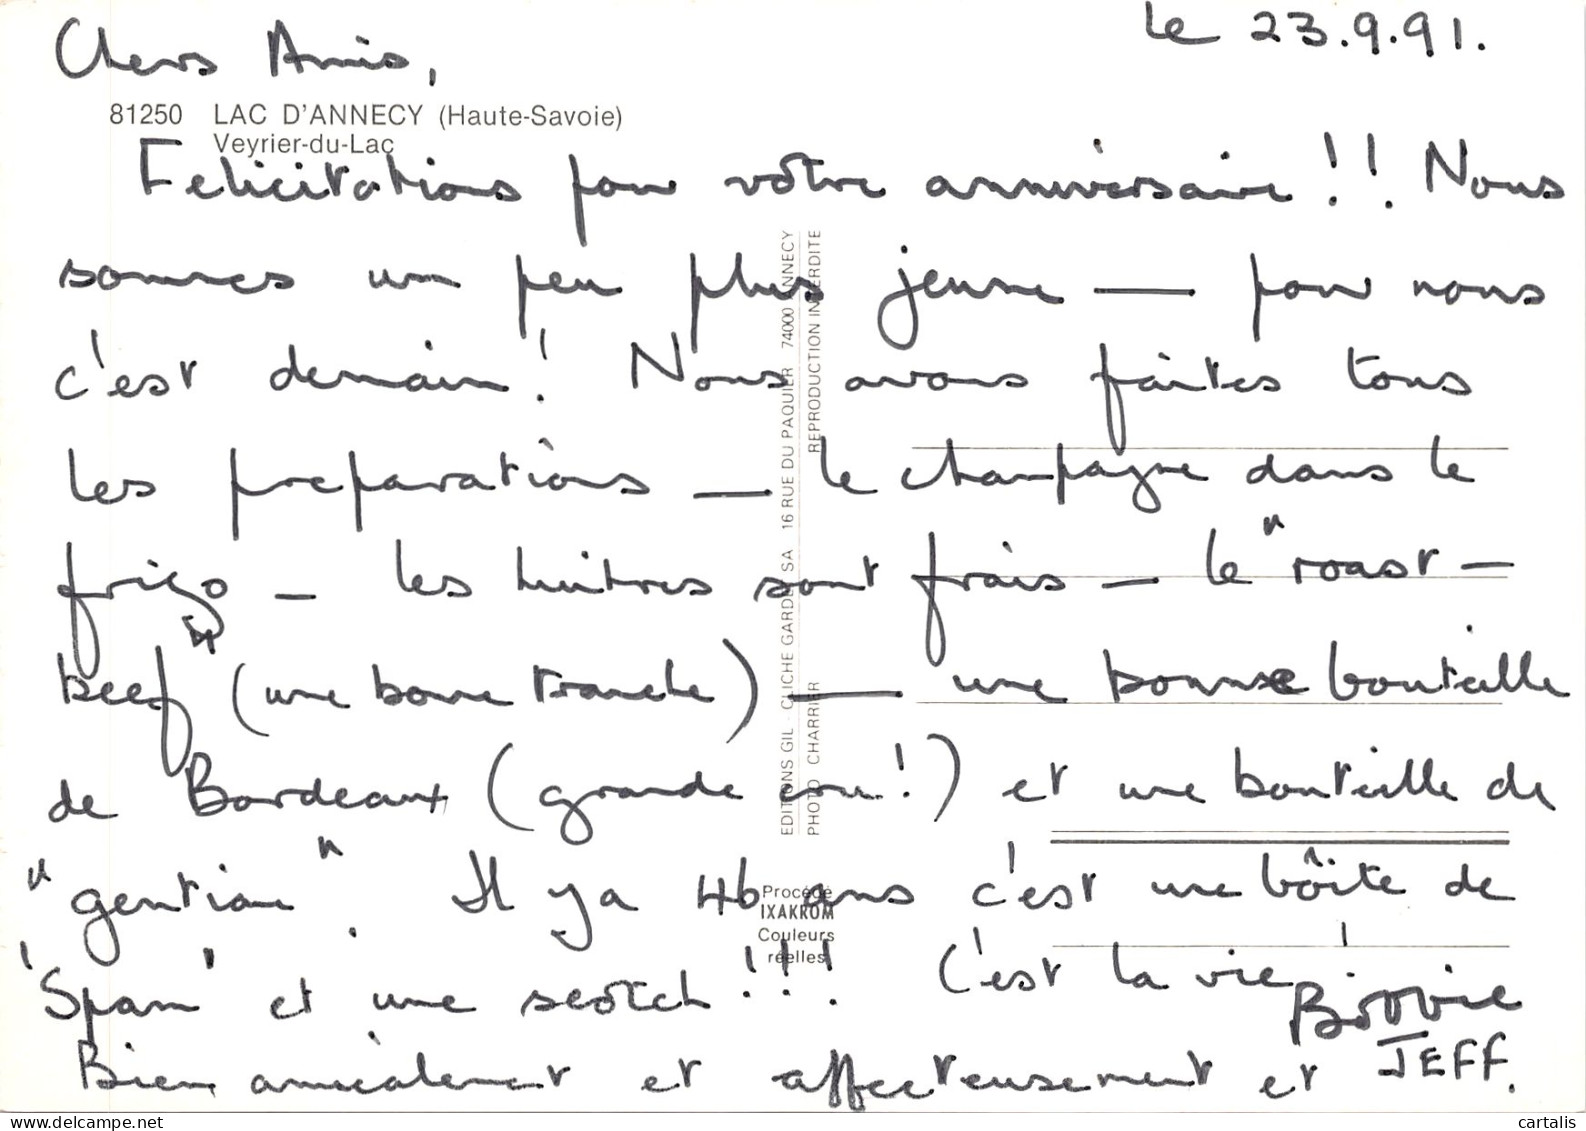 le 23.9.91.
Chers Amis,
81250 LAC D'ANNECY (Haute-Savoie)
Veyrier-du-Lac
Felicitations pour votre anniversaire !! Nous
sommes un peu plus jeune — pour nous
c'est demain! Nous avons faites tous
les preparations — le champagne dans le
frigo — les huitres sont frais — le "roast —
beef" (une bonne tranche) — une bonne bouteille
de Bordeaux (grande cru!) et une bouteille de
"gentian". Il y a 46 ans c'est une bôite de
'Spam' et une scotch!!! C'est la vie!
Bien amicalement et affecteusement et
JEFF.
EDITIONS GIL - CLICHE GARDE SA 16 RUE DU PAQUIER 74000 ANNECY
PHOTO CHARRIER REPRODUCTION INTERDITE
Procédé
IXAKROM
Couleurs
réelles
cartalis